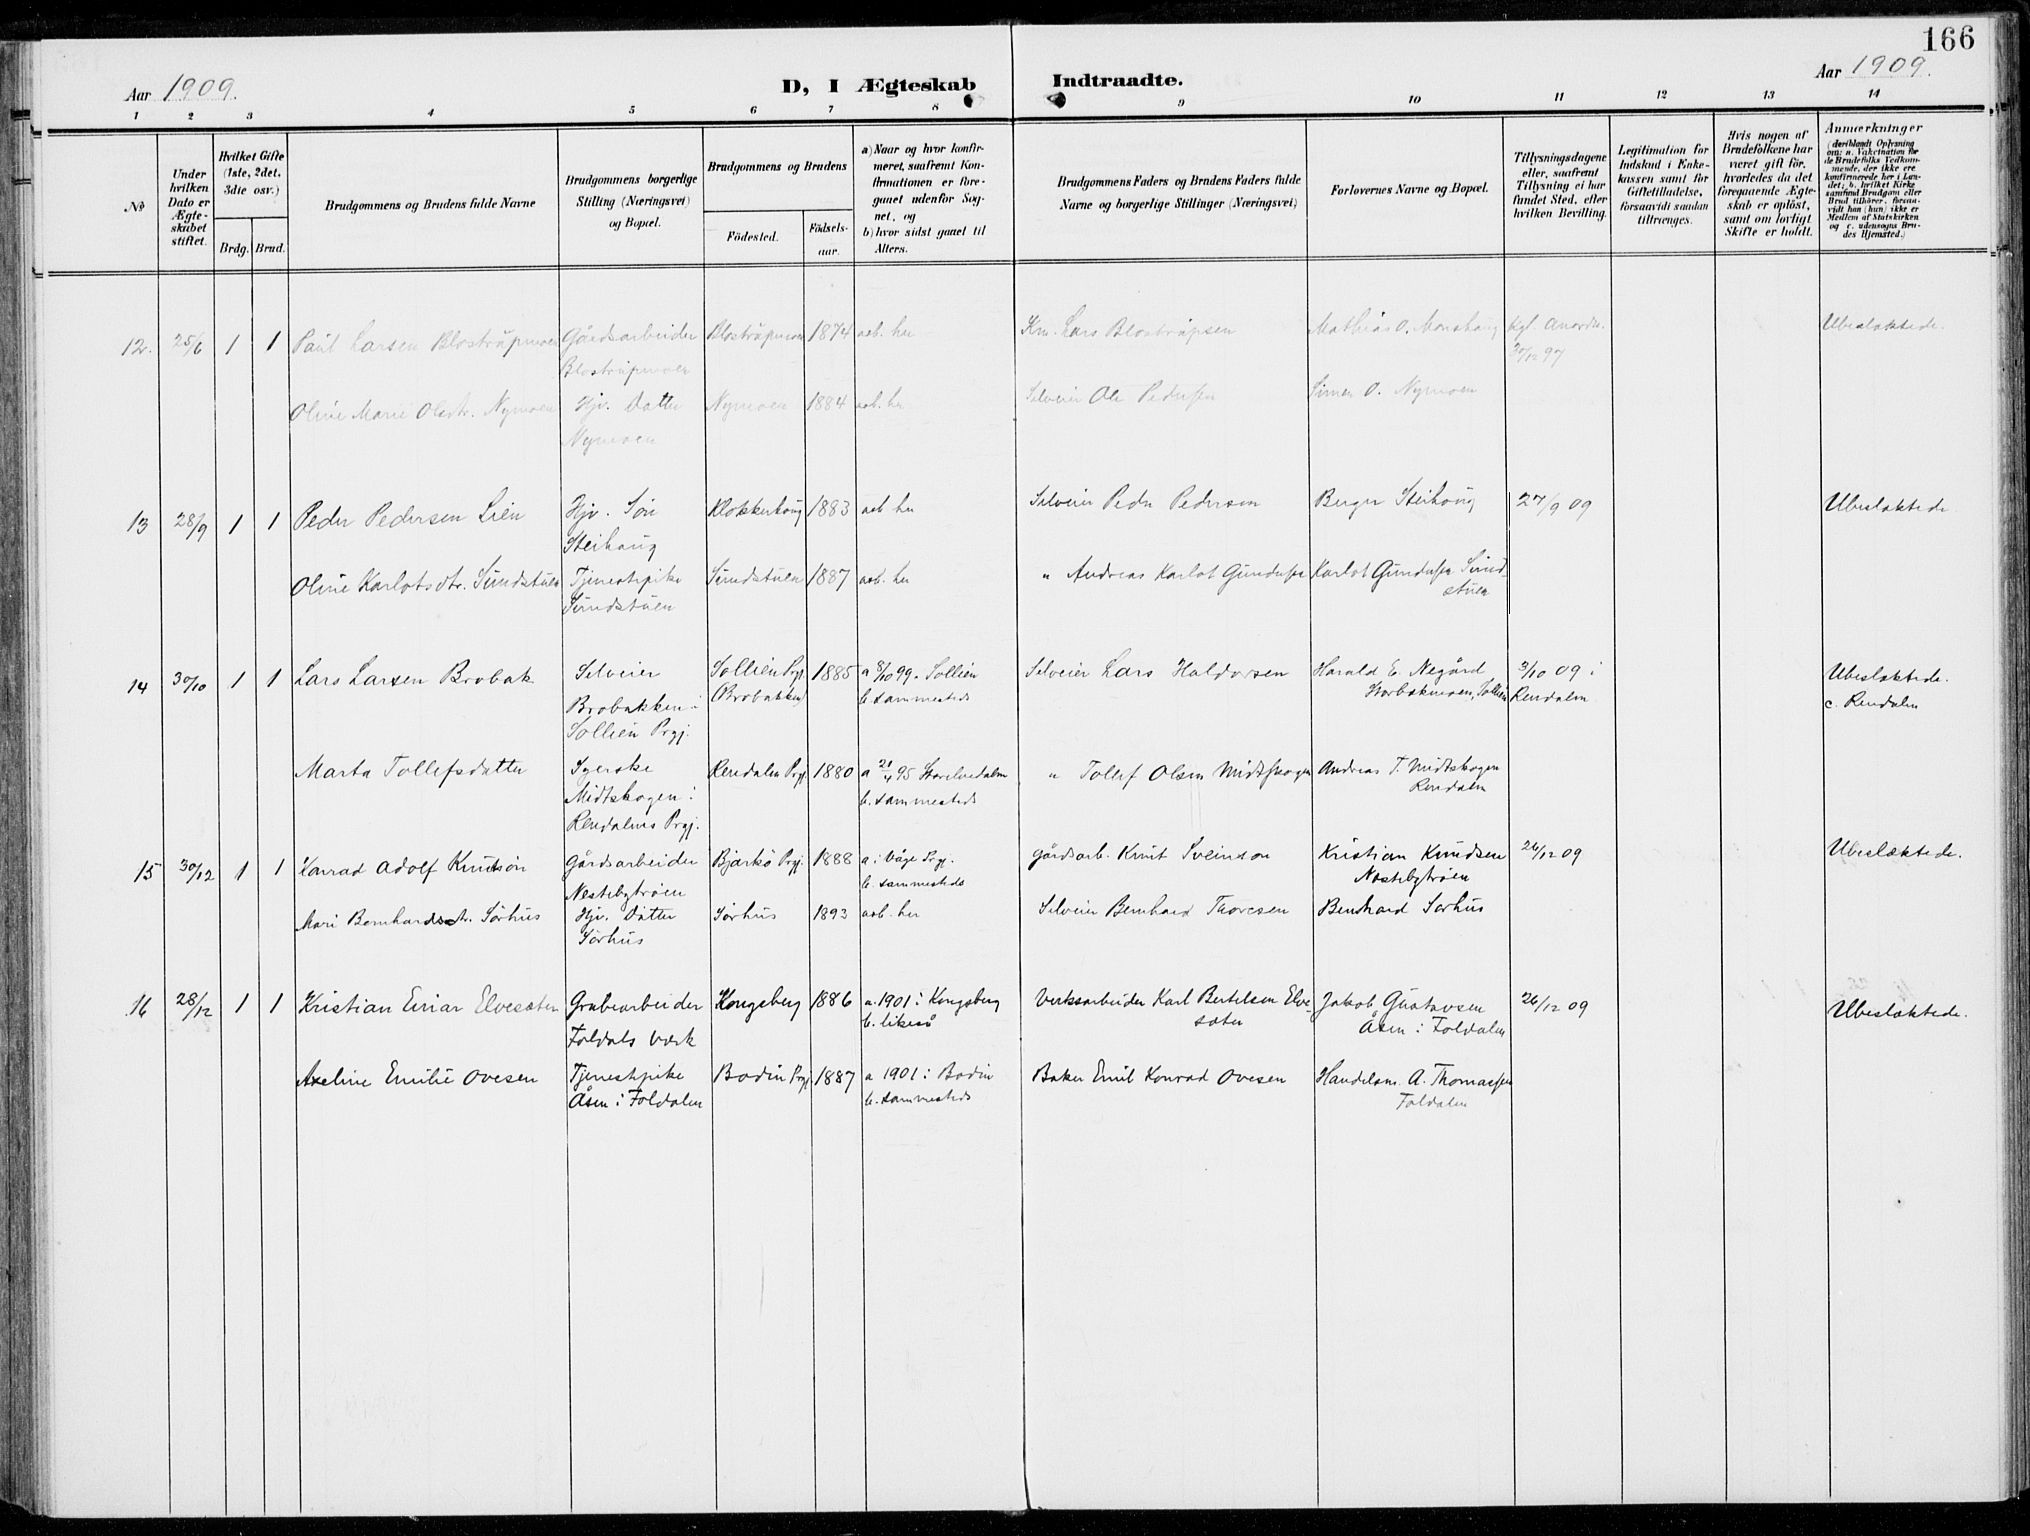 166
Aar 1909.
D, I Ægteskab Indtraadte.
Aar 1909.
1 2 3 4 5 6 7 8 9 10 11 12 13 14
№
Under hvilken Dato er Ægteskabet stiftet.
Hvilket Gifte (1ste, 2det, 3die osv.)
Brdg. Brud.
Brudgommens og Brudens fulde Navne
Brudgommens borgerlige Stilling (Næringsvei) og Bopæl.
Brudgommens og Brudens
Födested.
Födselsaar.
a) Naar og hvor konfirmeret, saafremt Konfirmationen er foregaaet udenfor Sognet, og
b) hvor sidst gaaet til Alters.
Brudgommens Faders og Brudens Faders fulde Navne og borgerlige Stillinger (Næringsvei)
Forlovernes Navne og Bopæl.
Tillysningsdagene eller, saafremt Tillysning ei har fundet Sted, efter hvilken Bevilling.
Legitimation for Indskud i Enkekassen samt for Giftetilladelse, forsaavidt saadan tiltrænges.
Hvis nogen af Brudefolkene har været gift för, hvorledes da det foregaaende Ægteskab er oplöst, samt om lovligt Skifte er holdt.
Anmærkninger (deriblandt Oplysning om: a. Vakcination for de Brudefolks Vedkommende, der ikke ere konfirmerede her i Landet; b. hvilket Kirkesamfund Brudgom eller Brud tilhörer, forsaavidt han (hun) ikke er Medlem af Statskirken og c. udensogns Brudes Hjemsted.)
12. 25/6 1 1 Paul Larsen Blostrupmoen Gårdsarbeider Blostrupmoen 1874 aob. her Lars Blostrupsen Mathias O. Morshaug kgl. Anordn. Ubeslæktede.
Blostrupmoen 30/12 97
Oline Marie Olsdtr. Nymoen Hjv. Datter Nymoen 1884 aob. her Selveier Ole Pedersen Simen O. Nymoen
Nymoen
13 28/9 1 1 Peder Pedersen Lien Hjv. Søn Klokkerhaug 1883 aob her Selveier Peder Pedersen Berger Steihaug 27/9 09 Ubeslæktede
Steihaug
Oline Karlotsdtr. Sundstuen Tjenestepike Sundstuen 1887 aob. her " Andreas Karlot Gundersen Karlot Gundersen Sundstuen
Sundstuen
14 30/10 1 1 Lars Larsen Brobak Selveier Sollien Prgj. 1885 a 8/10 99. Sollien Selveier Lars Haldorsen Harald E. Negård 3/10 09 i Ubeslæktede.
Brobakken i Brobakken b. sammesteds Storbækmoen, Sollien Rendalen c. Rendalen
Sollien Prgj.
Marta Tollefsdatter Syerske Rendalen Prgj. 1880 a 21/4 95 Storelvedalen " Tollef Olsen Midtskogen Andreas T. Midtskogen
Midtskogen i b. sammesteds Rendalen
Rendalens Prgj.
15 30/12 1 1 Konrad Adolf Knutsøn Gårdsarbeider Bjarkø Prgj. 1888 a i Våge Prgj. gårdsarb. Knut Sveinson Kristian Knudsen 26/12 09 Ubeslæktede.
Nestebytrøen b. sammesteds Nestebytrøen
Mari Bernhardsdtr. Sørhus Hjv. Datter Sørhus 1893 aob. her Selveier Bernhard Thoresen Bernhard Sørhus
Sørhus
16 28/12 1 1 Kristian Einar Elvesæter Grubearbeider Kongsberg 1886 a. 1901 i Kongsberg Verksarbeider Karl Bertelsen Elvesæter Jakob Gustavsen 26/12 09 Ubeslæktede.
Foldals Verk b. likeså Åsen i Foldalen
Axeline Emilie Ovesen Tjenestepike Bodin Prgj. 1887 a 1901 i Bodin Baker Emil Konrad Ovesen Handelsm. A. Thomassen
Åsen i Foldalen b. sammesteds Foldalen